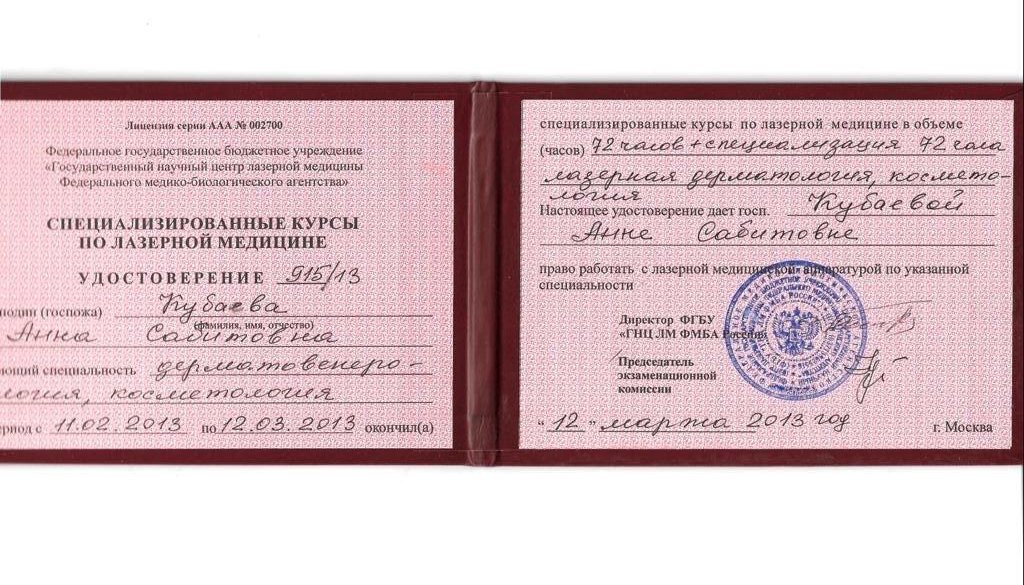 Лицензия серии ААА № 002700
Федеральное государственное бюджетное учреждение
«Государственный научный центр лазерной медицины
Федерального медико-биологического агентства»
СПЕЦИАЛИЗИРОВАННЫЕ КУРСЫ
ПО ЛАЗЕРНОЙ МЕДИЦИНЕ
УДОСТОВЕРЕНИЕ 915/13
подин (госпожа) Кубаева
(фамилия, имя, отчество)
Анна Сабитовна
ющий специальность дерматовенеро-
логия, косметология
ериод с 11.02.2013 по 12.03.2013 окончил(а)
специализированные курсы по лазерной медицине в объеме
(часов) 72 часов + специализация 72 часа
лазерная дерматология, космето-
логия
Настоящее удостоверение дает госп. Кубаевой
Анне Сабитовне
право работать с лазерной медицинской аппаратурой по указанной
специальности
Директор ФГБУ
«ГНЦ ЛМ ФМБА России»
Председатель
экзаменационной
комиссии
“ 12 ” марта 2013 год г. Москва